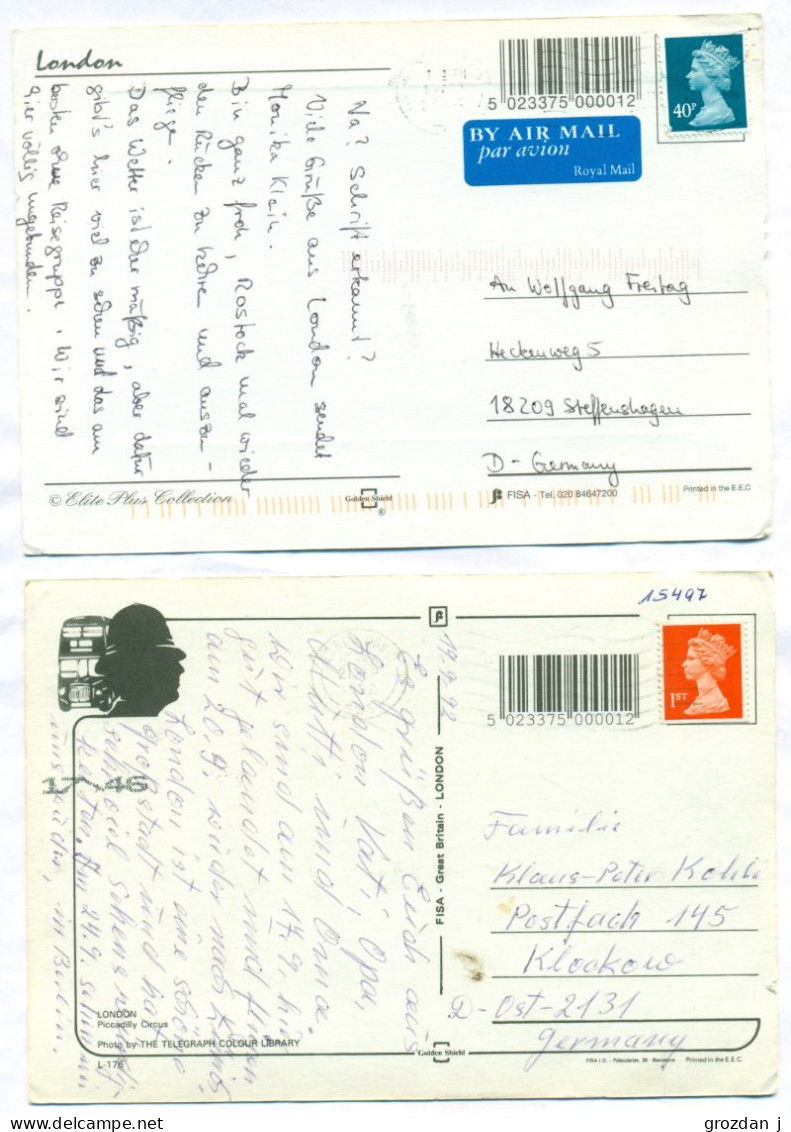 London
5 023375 000012
40P
BY AIR MAIL
par avion
Royal Mail
Na? Schrift erkannt?
Viele Grüße aus London sendet
Monika Klein.
Bin ganz froh, Rostock mal wieder
den Rücken zu kehren und auszu-
fliegen.
Das Wetter ist mäßig, aber dafür
gibt's hier viel zu sehen und das am
besten ohne Reisegruppe. Wir sind
hier völlig ungebunden.
An Wolfgang Freitag
Heckenweg 5
18209 Steffenshagen
D-Germany
© Elite Plus Collection
Golden Shield
®
FISA - Tel. 020 84647200
Printed in the E.E.C
15497
1ST
5 023375 000012
19.9.92
Es grüßen Euch aus
London Kati, Opa,
Mutti und Oma.
Wir sind am 17.9. hier
gut gelandet und
am 20.9. wieder nach
London ist eine schöne
Großstadt und hat
sehr viel Sehenswürdig-
keiten. Am 24.9. sehen wir
uns wieder, in Berlin.
17 46
FISA - Great Britain - LONDON
Familie
Klaus-Peter
Postfach 145
Klockow
D-Ost-2131
Germany
LONDON
Piccadilly Circus
Photo by THE TELEGRAPH COLOUR LIBRARY
L-176
Golden Shield
Printed in the E.E.C.
grozdan j